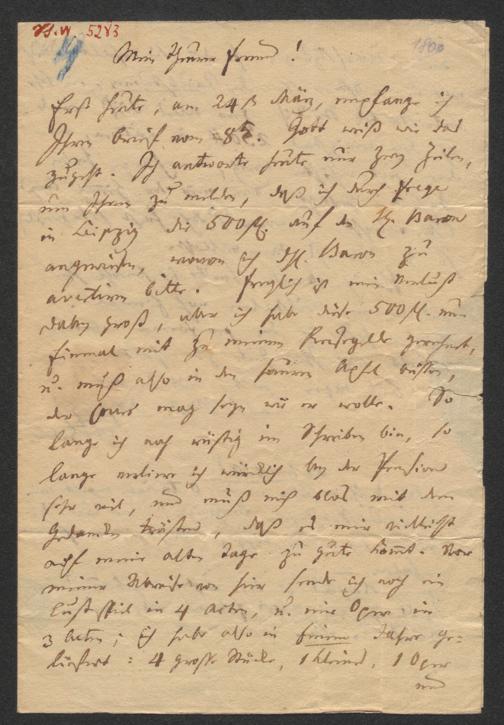 H.N 5283
1800
Mein theurer Freund!
Erst heute, am 24st März, empfange ich
Ihren Brief vom 8t. Gott weiß wie das
zugeht. Ich antworte heute nur zwey Zeilen,
um Ihnen zu melden, daß ich durch Frege
in Leipzig die 500 fl. auf den H. Baron
angewiesen, wovon ich dH. Baron zu
avertiren bitte. Freylich ist mein Verlust
dabey groß, aber ich habe diese 500 fl. nun
einmal mit zu meinem Reisegelde gerechnet,
u. muß also in den sauren Apfel beißen,
der Cours mag seyn wie er wolle. So
lange ich noch rüstig im Schreiben bin, so
lange verliere ich wirklich bey der Pension
sehr viel, und muß mich blos mit dem
Gedanken trösten, daß es mir vielleicht
auf meine alten Tage zu gute kömmt. Vor
meiner Abreise von hier sende ich noch ein
Lustspiel in 4 Acten, u. eine Oper in
3 Acten; ich habe also in einem Jahre ge-
liefert: 4 große Stücke, 1 kleines, 1 Oper
und